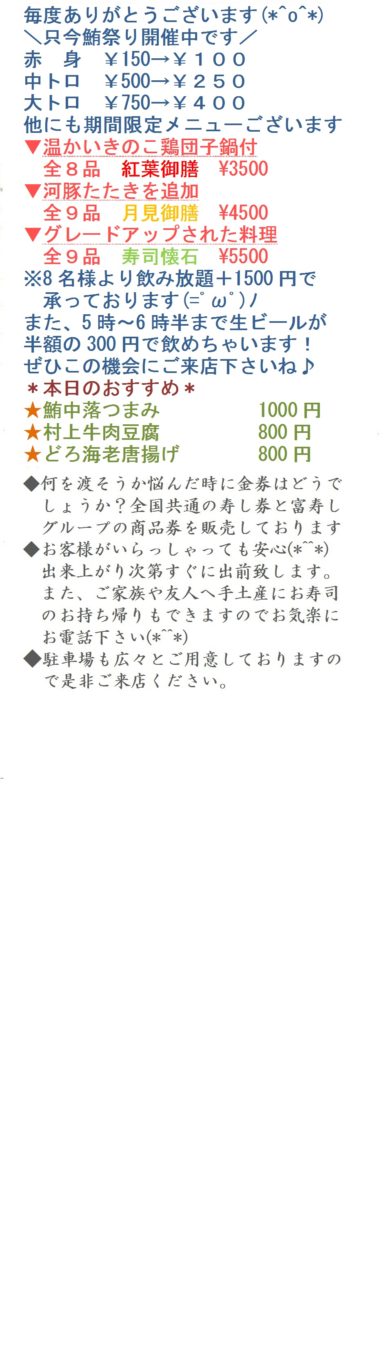 毎度ありがとうございます(*^o^*)
＼只今鮪祭り開催中です／
赤　身　￥150→￥１００
中トロ　￥500→￥２５０
大トロ　￥750→￥４００
他にも期間限定メニューございます
▼温かいきのこ鶏団子鍋付
全８品　紅葉御膳　¥3500
▼河豚たたきを追加
全９品　月見御膳　¥4500
▼グレードアップされた料理
全９品　寿司懐石　¥5500
※8 名様より飲み放題＋1500 円で
承っております(=ﾟωﾟ)ﾉ
また、5 時～6 時半まで生ビールが
半額の 300 円で飲めちゃいます！
ぜひこの機会にご来店下さいね♪
＊本日のおすすめ＊
★鮪中落つまみ　1000 円
★村上牛肉豆腐　800 円
★どろ海老唐揚げ　800 円
◆何を渡そうか悩んだ時に金券はどうで
しょうか？全国共通の寿し券と富寿し
グループの商品券を販売しております
◆お客様がいらっしゃっても安心(*^^*)
出来上がり次第すぐに出前致します。
また、ご家族や友人へ手土産にお寿司
のお持ち帰りもできますのでお気楽に
お電話下さい(*^^*)
◆駐車場も広々とご用意しておりますの
で是非ご来店ください。